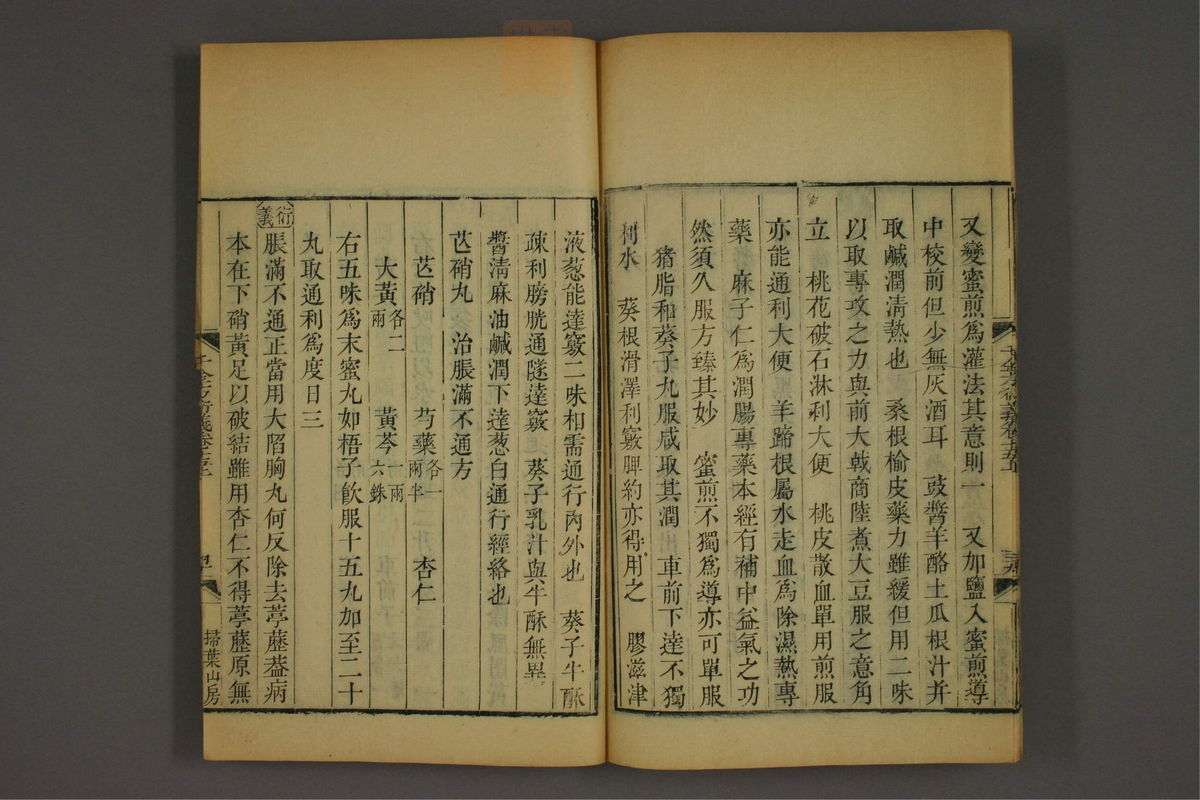 又變蜜煎爲灌法其意則一　又加鹽入蜜煎導
中校前但少無灰酒耳　豉醬羊酪土瓜根汁并
取鹹潤清熱也　桑根榆皮藥力雖緩但用二味
以取專攻之力與前大戟商陸煮大豆服之意角
立　桃花破石淋利大便　桃皮散血單用煎服
亦能通利大便　羊蹄根屬水走血爲除濕熱專
藥　麻子仁爲潤腸專藥本經有補中益氣之功
然須久服方臻其妙　蜜煎不獨爲導亦可單服
猪脂和葵子丸服咸取其潤　車前下達不獨
利水　葵根滑澤利竅脾約亦得用之　膠滋津
液葱能達竅二味相需通行內外也　葵子牛酥
疎利膀胱通隧達竅　葵子乳汁與牛酥無異
醬清麻油鹹潤下達葱白通行經絡也
芒硝丸　治脹滿不通方
芒硝　芍藥各一兩半　杏仁
大黃各二兩　黃芩一兩六銖
右五味爲末蜜丸如梧子飲服十五丸加至二十
丸取通利爲度日三
衍義
脹滿不通正當用大陷胸丸何反除去葶藶葢病
本在下硝黃足以破結雖用杏仁不得葶藶原無
掃葉山房